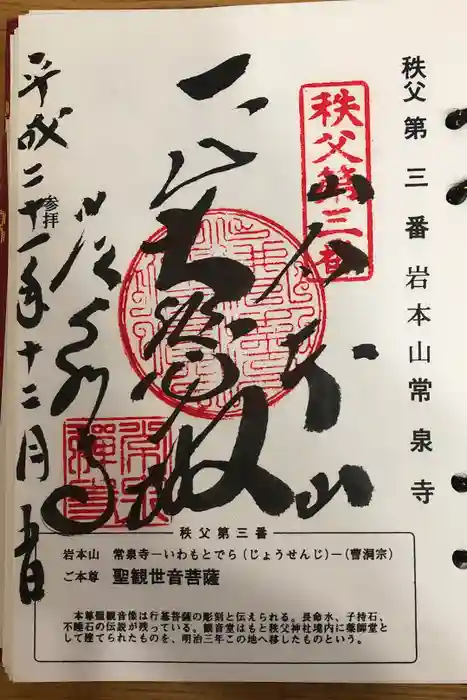 秩父第三番岩本山常泉寺
秩父第三番
岩本山
参拝
平成二十一年十二月吉日
秩父第三番
岩本山 常泉寺―いわもとでら(じょうせんじ)―(曹洞宗)
ご本尊 聖観世音菩薩
本尊観音像は行基菩薩の彫刻と伝えられる。長命水、子持石、
不睡石の伝説が残っている。観音堂はもと秩父神社境内に薬師堂と
して建てられたものを、明治三年この地へ移したものという。